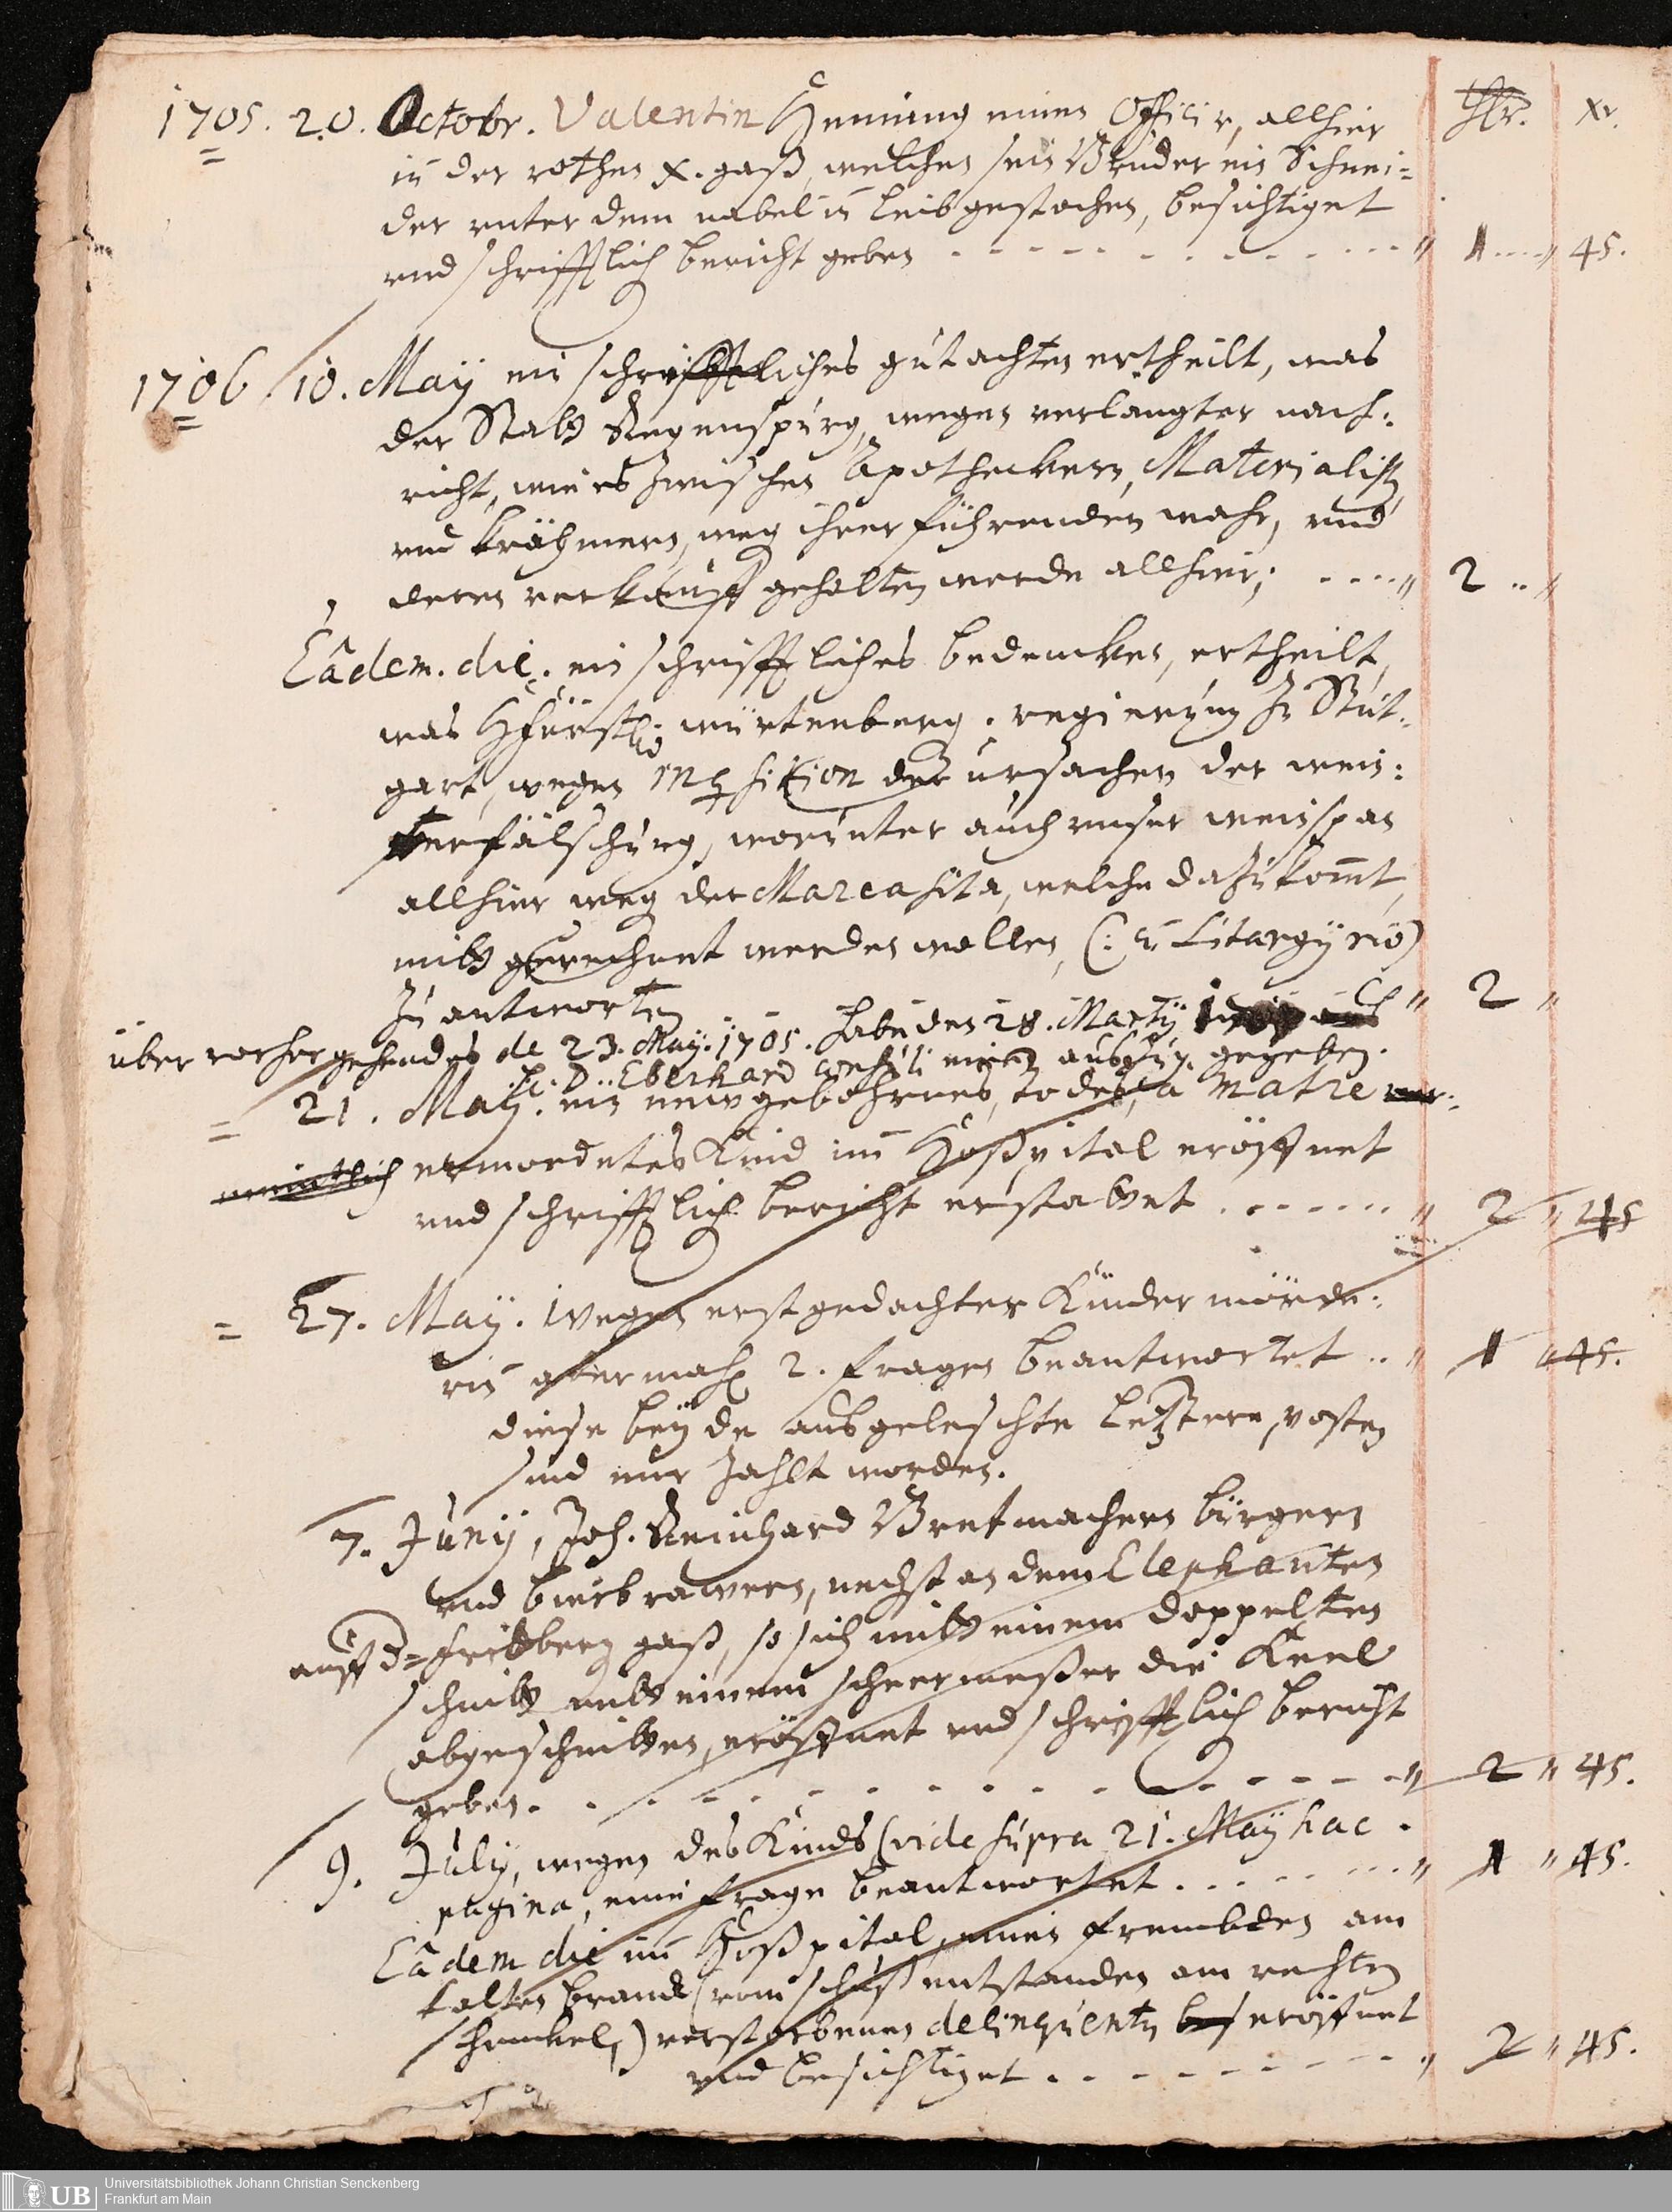 1705. 20. Octobr. Valentin Henning einen Officir, allhier
in der rothen X. gaß, welchen sein Bruder ein Schnei=
der unter dem nabel in leib gestochen, besichtiget
und schrifftlich bericht geben - - - " 1 " 45.
thlr. xr.
1706 10. May ein schrifftliches gutachten ertheilt, was
der Statt Regenspurg, wegen verlangter nach:
richt, wie es zwischen Apotheckern, Materialisten
und Krähmern, weg ihrer führenden wahr, und
deren verkauff gehalten werde allhier; .... " 2 .. "
Eâdem. die. ein schrifftliches bedencken, ertheilt,
was Hfürstl. würtenberg. regierung zu Stut:
gart, wegen inquisition der ursachen der wein:
verfälschung, worunter auch unser weinspan
allhier weg der Marcasita, welche dazu kommt,
mitt gerechnet werden wollen, (: è Litargyrio)
zu antworten - - " 2 "
über vorhergehendes de 23. May. 1705. habe den 28. Martij
H. D. Eberhard consuli einen außzug. gegeben.
= 21. May. ein new gebohrnes, todes, a matre ver:
meintlich ermordetes Kind im Hoßpital eröffnet
und schrifftlich bericht erstattet ....... " 2 " 45
= 27. May. wegen erstgedachter Kinder mörde:
rin abermahl 2. fragen beantwortet .. " 1 " 45.
diese beyde außgeleschte letztere, posten
sind mir zahlt worden.
7. Junij, Joh. Reinhard Bretmachern bürgern
und bierbrawern, nechst an dem Elephanten
auff d= fridberg gaß, so sich mitt einem doppelten
schnitt mitt einem scheermeßer die Keel
abgeschnitten, eröffnet und schrifftlich bericht
geben. - - - " 2 " 45.
9. July, wegen des Kinds (vide supra 21. May hac
pagina, eine frage beantwortet. .... " 1 " 45.
Eâdem die im Hoßpital, einen frembden am
kalten brand (vom schuß entstanden am rechten
schenckel,) verstorbenen delinquenten eröffnet
und besichtiget . - - - " 2 " 45.
UB Universitätsbibliothek Johann Christian Senckenberg
Frankfurt am Main